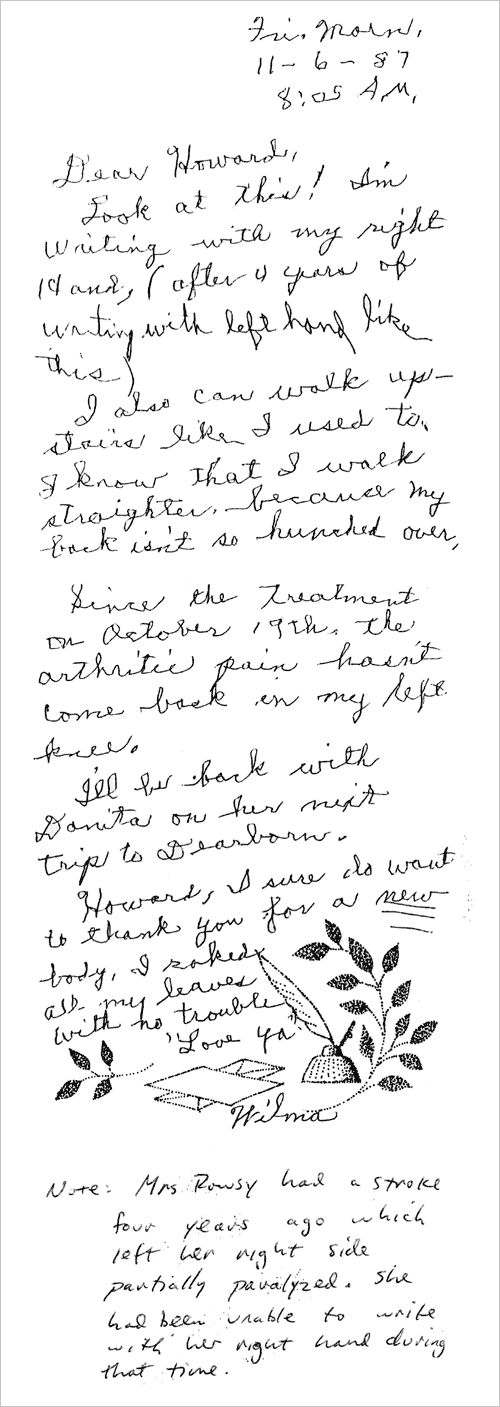 Fri. Morn.
11-6-87
8:05 A.M.
Dear Howard,
Look at this! I'm
writing with my right
Hand, (after 4 years of
writing with left hand like
this)
I also can walk up-
stairs like I used to.
I know that I walk
straighter, because my
back isn't so hunched over.
Since the treatment
on October 19th, the
arthritic pain hasn't
come back in my left
knee.
I'll be back with
Donita on her next
trip to Dearborn.
Howard, I sure do want
to thank you for a new
body. I raked
all my leaves
with no trouble
"Love Ya"
Wilma
Note: Mrs Rowsy had a stroke
four years ago which
left her right side
partially paralyzed. She
had been unable to write
with her right hand during
that time.